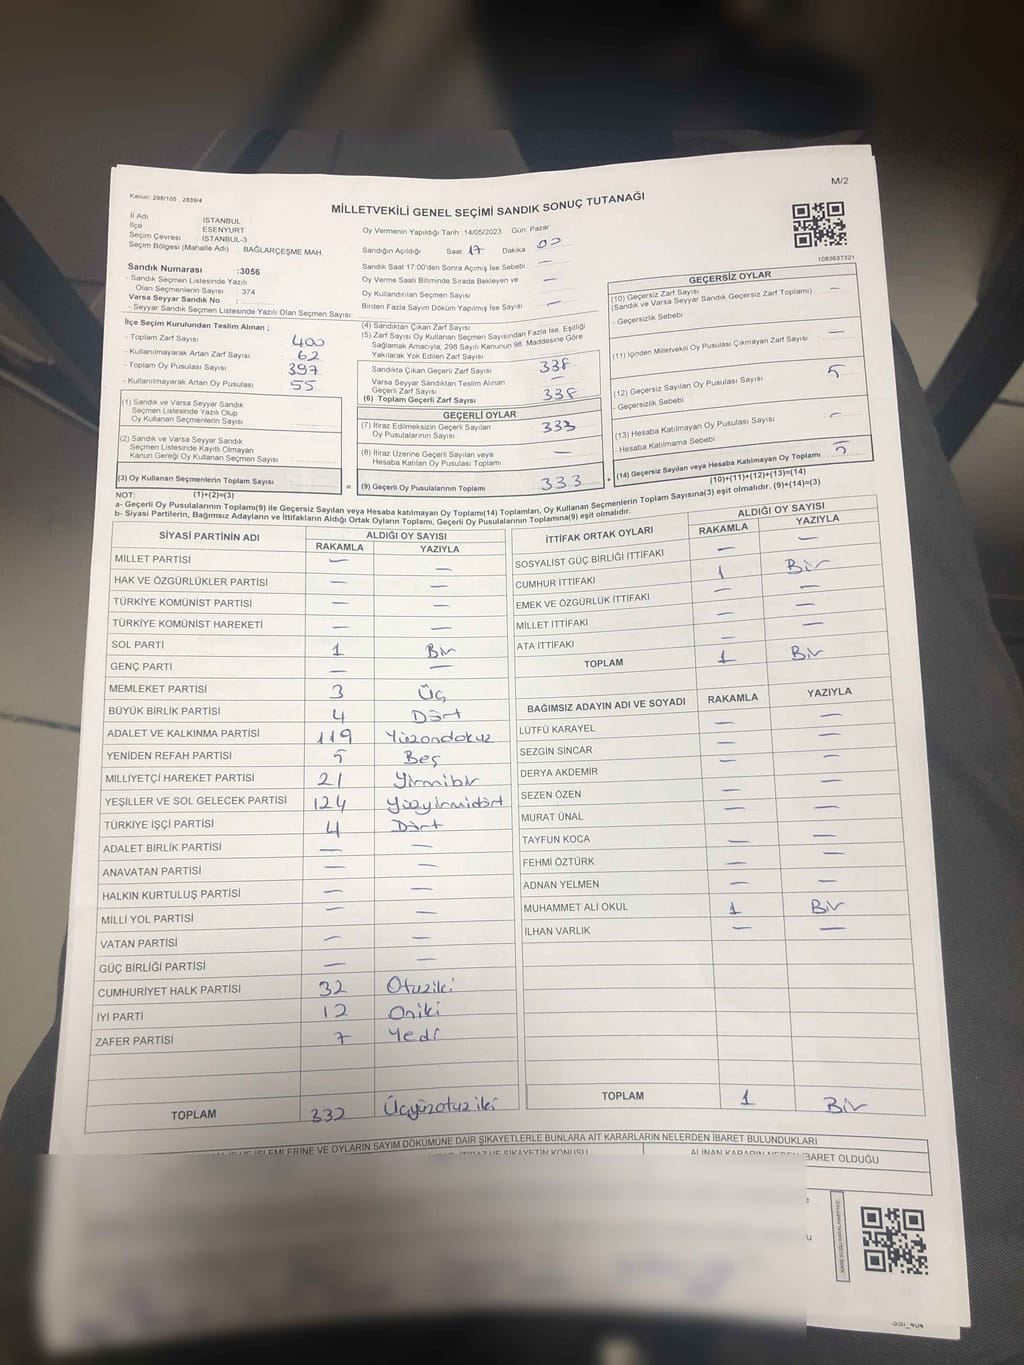 Kanun: 298/105 2839/4
M/2
MİLLETVEKİLİ GENEL SEÇİMİ SANDIK SONUÇ TUTANAĞI
İl Adı : İSTANBUL
İlçe : ESENYURT
Seçim Çevresi : İSTANBUL-3
Seçim Bölgesi (Mahalle Adı) : BAĞLARÇEŞME MAH.
Sandık Numarası :3056
- Sandık Seçmen Listesinde Yazılı
Olan Seçmenlerin Sayısı : 374
Varsa Seyyar Sandık No :
- Seyyar Sandık Seçmen Listesinde Yazılı Olan Seçmen Sayısı:
Oy Vermenin Yapıldığı Tarih : 14/05/2023 Gün: Pazar
Sandığın Açıldığı Saat: 17 Dakika : 00
Sandık Saat 17:00'den Sonra Açımış İse Sebebi : —
Oy Verme Saati Bitiminde Sırada Bekleyen ve
Oy Kullandırılan Seçmen Sayısı : —
Birden Fazla Sayım Döküm Yapılmış İse Sayısı : —
1083637321
İlçe Seçim Kurulundan Teslim Alınan ;
- Toplam Zarf Sayısı : 400
- Kullanılmayarak Artan Zarf Sayısı : 62
- Toplam Oy Pusulası Sayısı : 397
- Kullanılmayarak Artan Oy Pusulası : 55
(1) Sandık ve Varsa Seyyar Sandık
Seçmen Listesinde Yazılı Olup
Oy Kullanan Seçmenlerin Sayısı :
(2) Sandık ve Varsa Seyyar Sandık
Seçmen Listesinde Kayıtlı Olmayan
Kanun Gereği Oy Kullanan Seçmen Sayısı :
(3) Oy Kullanan Seçmenlerin Toplam Sayısı :
(1)+(2)=(3)
(4) Sandıktan Çıkan Zarf Sayısı :
(5) Zarf Sayısı Oy Kullanan Seçmen Sayısından Fazla İse, Eşitliği
Sağlamak Amacıyla; 298 Sayılı Kanunun 98. Maddesine Göre
Yakılarak Yok Edilen Zarf Sayısı
Sandıkta Çıkan Geçerli Zarf Sayısı : 338
Varsa Seyyar Sandıktan Teslim Alınan
Geçerli Zarf Sayısı : —
(6) Toplam Geçerli Zarf Sayısı : 338
GEÇERLİ OYLAR
(7) İtiraz Edilmeksizin Geçerli Sayılan
Oy Pusulalarının Sayısı : 333
(8) İtiraz Üzerine Geçerli Sayılan veya
Hesaba Katılan Oy Pusulası Toplamı : —
= (9) Geçerli Oy Pusulalarının Toplamı : 333 +
GEÇERSİZ OYLAR
(10) Geçersiz Zarf Sayısı
(Sandık ve Varsa Seyyar Sandık Geçersiz Zarf Toplamı) : —
- Geçersizlik Sebebi :
(11) İçinden Milletvekili Oy Pusulası Çıkmayan Zarf Sayısı : —
(12) Geçersiz Sayılan Oy Pusulası Sayısı : 5
- Geçersizlik Sebebi
(13) Hesaba Katılmayan Oy Pusulası Sayısı : —
- Hesaba Katılmama Sebebi :
(14) Geçersiz Sayılan veya Hesaba Katılmayan Oy Toplamı : 5
(10)+(11)+(12)+(13)=(14)
NOT:
a- Geçerli Oy Pusulalarının Toplamı(9) ile Geçersiz Sayılan veya Hesaba katılmayan Oy Toplamı(14) Toplamları, Oy Kullanan Seçmenlerin Toplam Sayısına(3) eşit olmalıdır. (9)+(14)=(3)
b- Siyasi Partilerin, Bağımsız Adayların ve İttifakların Aldığı Ortak Oyların Toplamı, Geçerli Oy Pusulalarının Toplamına(9) eşit olmalıdır.
SİYASİ PARTİNİN ADI ALDIĞI OY SAYISI
RAKAMLA YAZIYLA
MİLLET PARTİSİ — —
HAK VE ÖZGÜRLÜKLER PARTİSİ — —
TÜRKİYE KOMÜNİST PARTİSİ — —
TÜRKİYE KOMÜNİST HAREKETİ — —
SOL PARTİ 1 Bir
GENÇ PARTİ — —
MEMLEKET PARTİSİ 3 Üç
BÜYÜK BİRLİK PARTİSİ 4 Dört
ADALET VE KALKINMA PARTİSİ 119 Yüzondokuz
YENİDEN REFAH PARTİSİ 5 Beş
MİLLİYETÇİ HAREKET PARTİSİ 21 Yirmibir
YEŞİLLER VE SOL GELECEK PARTİSİ 124 Yüzyirmidört
TÜRKİYE İŞÇİ PARTİSİ 4 Dört
ADALET BİRLİK PARTİSİ — —
ANAVATAN PARTİSİ — —
HALKIN KURTULUŞ PARTİSİ — —
MİLLİ YOL PARTİSİ — —
VATAN PARTİSİ — —
GÜÇ BİRLİĞİ PARTİSİ — —
CUMHURİYET HALK PARTİSİ 32 Otuziki
İYİ PARTİ 12 Oniki
ZAFER PARTİSİ 7 Yedi
TOPLAM 332 Üçyüzotuziki
İTTİFAK ORTAK OYLARI ALDIĞI OY SAYISI
RAKAMLA YAZIYLA
SOSYALİST GÜÇ BİRLİĞİ İTTİFAKI — —
CUMHUR İTTİFAKI 1 Bir
EMEK VE ÖZGÜRLÜK İTTİFAKI — —
MİLLET İTTİFAKI — —
ATA İTTİFAKI — —
TOPLAM 1 Bir
BAĞIMSIZ ADAYIN ADI VE SOYADI RAKAMLA YAZIYLA
LÜTFÜ KARAYEL — —
SEZGİN SİNCAR — —
DERYA AKDEMİR — —
SEZEN ÖZEN — —
MURAT ÜNAL — —
TAYFUN KOCA — —
FEHMİ ÖZTÜRK — —
ADNAN YELMEN — —
MUHAMMET ALİ OKUL 1 Bir
İLHAN VARLIK — —
TOPLAM 1 Bir
İŞLEMLERİNE VE OYLARIN SAYIM DÖKÜMÜNE DAİR ŞİKAYETLERLE BUNLARA AİT KARARLARIN NELERDEN İBARET BULUNDUKLARI
İTİRAZ VE ŞİKAYETİN KONUSU
ALINAN KARARIN NEDEN İBARET OLDUĞU